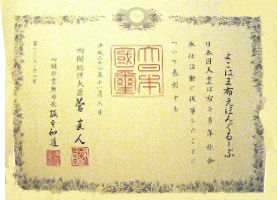 よこはま布えほんぐるーぷ
日本国天皇は右が多年社会
奉仕活動に従事したことに
ついて表彰する
大日本國璽
平成二十二年十一月三日
内閣総理大臣 菅直人
内閣府賞勲局長 阪本和道